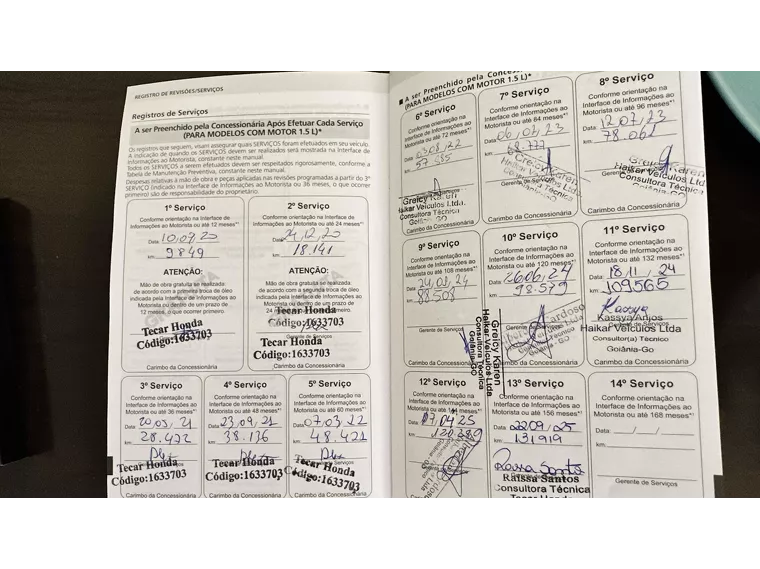 REGISTRO DE REVISÕES/SERVIÇOS
Registros de Serviços
A ser Preenchido pela Concessionária Após Efetuar Cada Serviço
(PARA MODELOS COM MOTOR 1.5 L)*
Os registros que seguem, visam assegurar quais SERVIÇOS foram efetuados em seu veículo.
A indicação de quando os SERVIÇOS devem ser realizados será mostrada na Interface de
Informações ao Motorista, constante neste manual.
Todos os SERVIÇOS a serem efetuados devem ser respeitados rigorosamente, conforme a
Tabela de Manutenção Preventiva, constante neste manual.
Despesas relativas à mão de obra e peças aplicadas nas revisões programadas a partir do 3º
SERVIÇO (indicado na Interface de Informações ao Motorista ou 36 meses, o que ocorrer
primeiro) são de responsabilidade do proprietário.
1º Serviço
Conforme orientação na Interface de
Informações ao Motorista ou até 12 meses*¹
Data 10,09,20
km 9849
ATENÇÃO:
Mão de obra gratuita se realizada
de acordo com a primeira troca de óleo
indicada pela Interface de Informações ao
Motorista ou dentro de um prazo de
12 meses, o que ocorrer primeiro.
Tecar Honda
Código:1633703
Carimbo da Concessionária
2º Serviço
Conforme orientação na Interface de
Informações ao Motorista ou até 24 meses*¹
Data 24,12,20
km 18.141
ATENÇÃO:
Mão de obra gratuita se realizada
de acordo com a segunda troca de óleo
indicada pela Interface de Informações ao
Motorista ou dentro de um prazo de
24 meses, o que ocorrer primeiro.
Gerente de Serviços
Tecar Honda
Código:1633703
Carimbo da Concessionária
3º Serviço
Conforme orientação na
Interface de Informações ao
Motorista ou até 36 meses*¹
Data 20,05,21
km 28.422
Tecar Honda
Código:1633703
Carimbo da Concessionária
4º Serviço
Conforme orientação na
Interface de Informações ao
Motorista ou até 48 meses*¹
Data: 23,09,21
km 38.126
Tecar Honda
Código:1633703
Carimbo da Concessionária
5º Serviço
Conforme orientação na
Interface de Informações ao
Motorista ou até 60 meses*¹
Data: 07,03,22
km 48.421
Serviços
Tecar Honda
Código:1633703
Carimbo da Concessionária
A ser Preenchido pela
(PARA MODELOS COM MOTOR 1.5 L)*
6º Serviço
Conforme orientação na
Interface de Informações ao
Motorista ou até 72 meses*¹
Greicy Karen
Carimbo da Concessionária
7º Serviço
Conforme orientação na
Interface de Informações ao
Motorista ou até 84 meses*¹
Data:
km:
Greicy Karen
Haikar Veículos Ltda
Consultora Técnica
Goiânia-GO
Carimbo da Concessionária
8º Serviço
Conforme orientação na
Interface de Informações ao
Motorista ou até 96 meses*¹
Data: 12,07,23
km: 78.061
Greicy Karen
Haikar Veículos Ltda
Consultora Técnica
Carimbo da Concessionária
9º Serviço
Conforme orientação na
Interface de Informações ao
Motorista ou até 108 meses*¹
km: 88508
Gerente de Serviços
Greicy Karen
Haikar Veículos Ltda
Consultora Técnica
Goiânia-GO
Carimbo da Concessionária
10º Serviço
Conforme orientação na
Interface de Informações ao
Motorista ou até 120 meses*¹
26,06,24
98.579
Cardoso
Carimbo da Concessionária
11º Serviço
Conforme orientação na
Interface de Informações ao
Motorista ou até 132 meses*¹
Data: 18,11,24
km: 109565
Kassya
Kassya Anjos
Haikar Veículos Ltda
Consultor(a) Técnico
Goiânia-Go
Carimbo da Concessionária
12º Serviço
Conforme orientação na
Interface de Informações ao
07,04,25
120289
Carimbo da Concessionária
13º Serviço
Conforme orientação na
Interface de Informações ao
Motorista ou até 156 meses*¹
22,09,25
131919
Raissa Santos
Raissa Santos
Consultora Técnica
Tecar Honda
14º Serviço
Conforme orientação na
Interface de Informações ao
Motorista ou até 168 meses*¹
Data: / /
km:
Gerente de Serviços
Carimbo da Concessionária